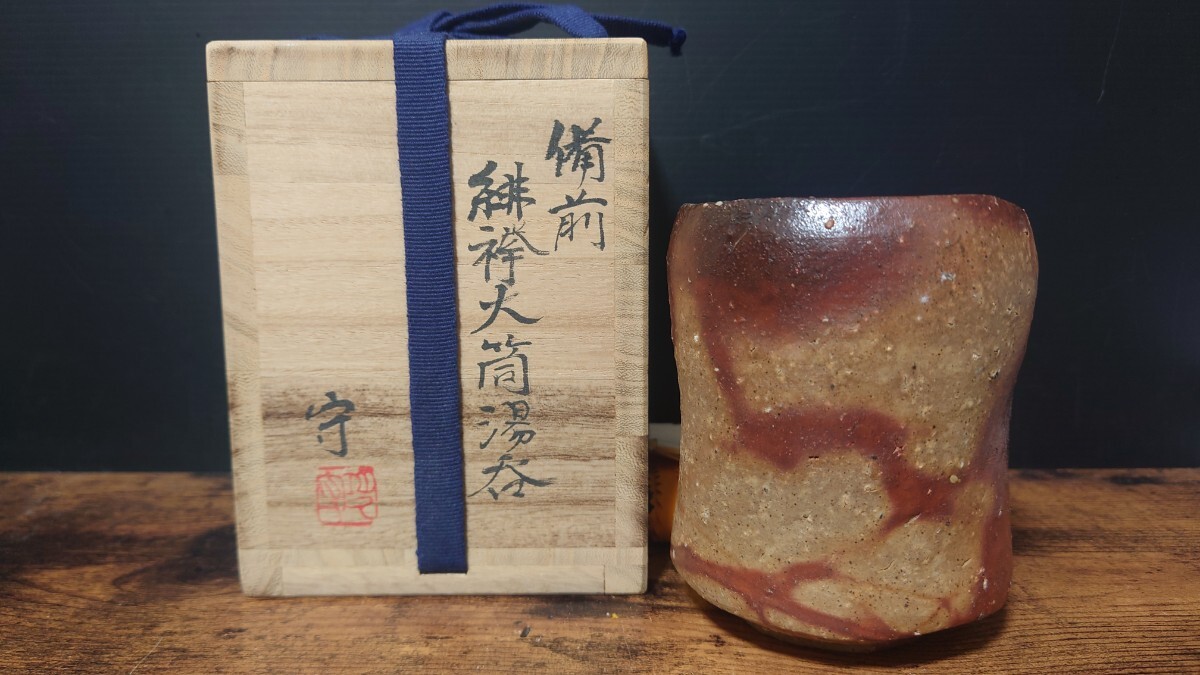 備前
緋襷大筒湯呑
守